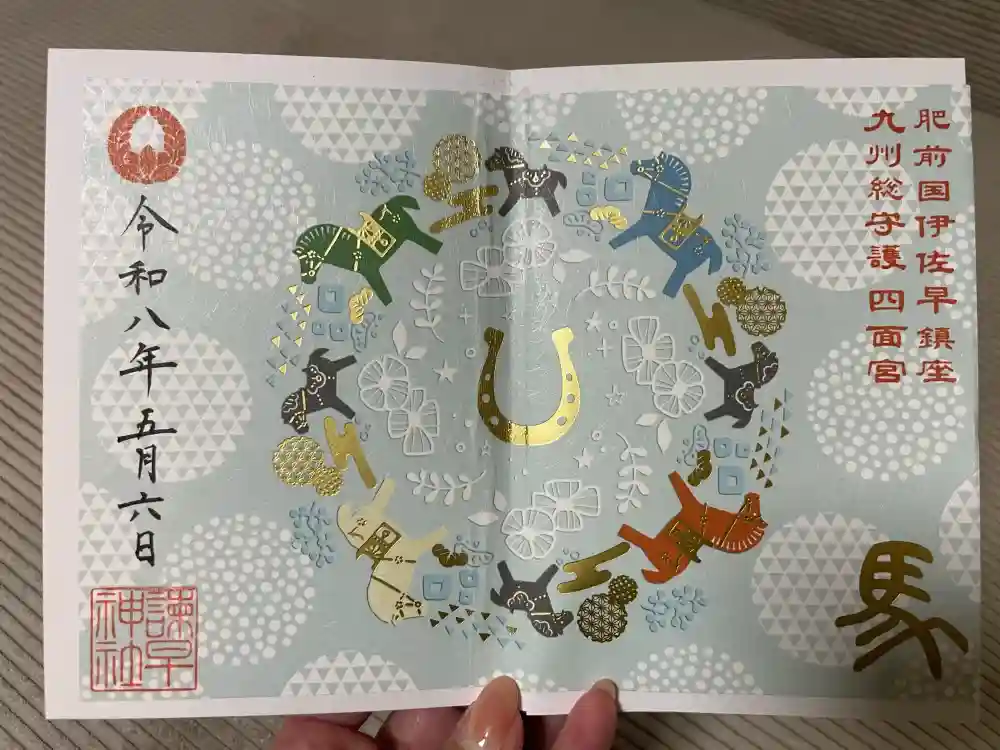 肥前国伊佐早鎮座
九州総守護 四面宮
馬
令和八年五月六日
諫早
神社